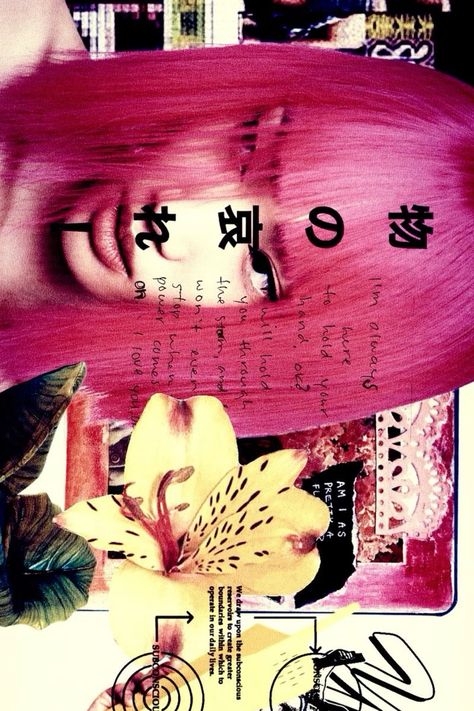 物の哀れ
I'm always
here
to hold your
hand, ok?
will hold
you through
the storm, and
won't even
stop when
power comes
on. I love you
AM I AS
PRETTY A
We draw upon the subconscious
reservoirs to create greater
boundaries within which to
operate in our daily lives.
SUBCONSCIOU